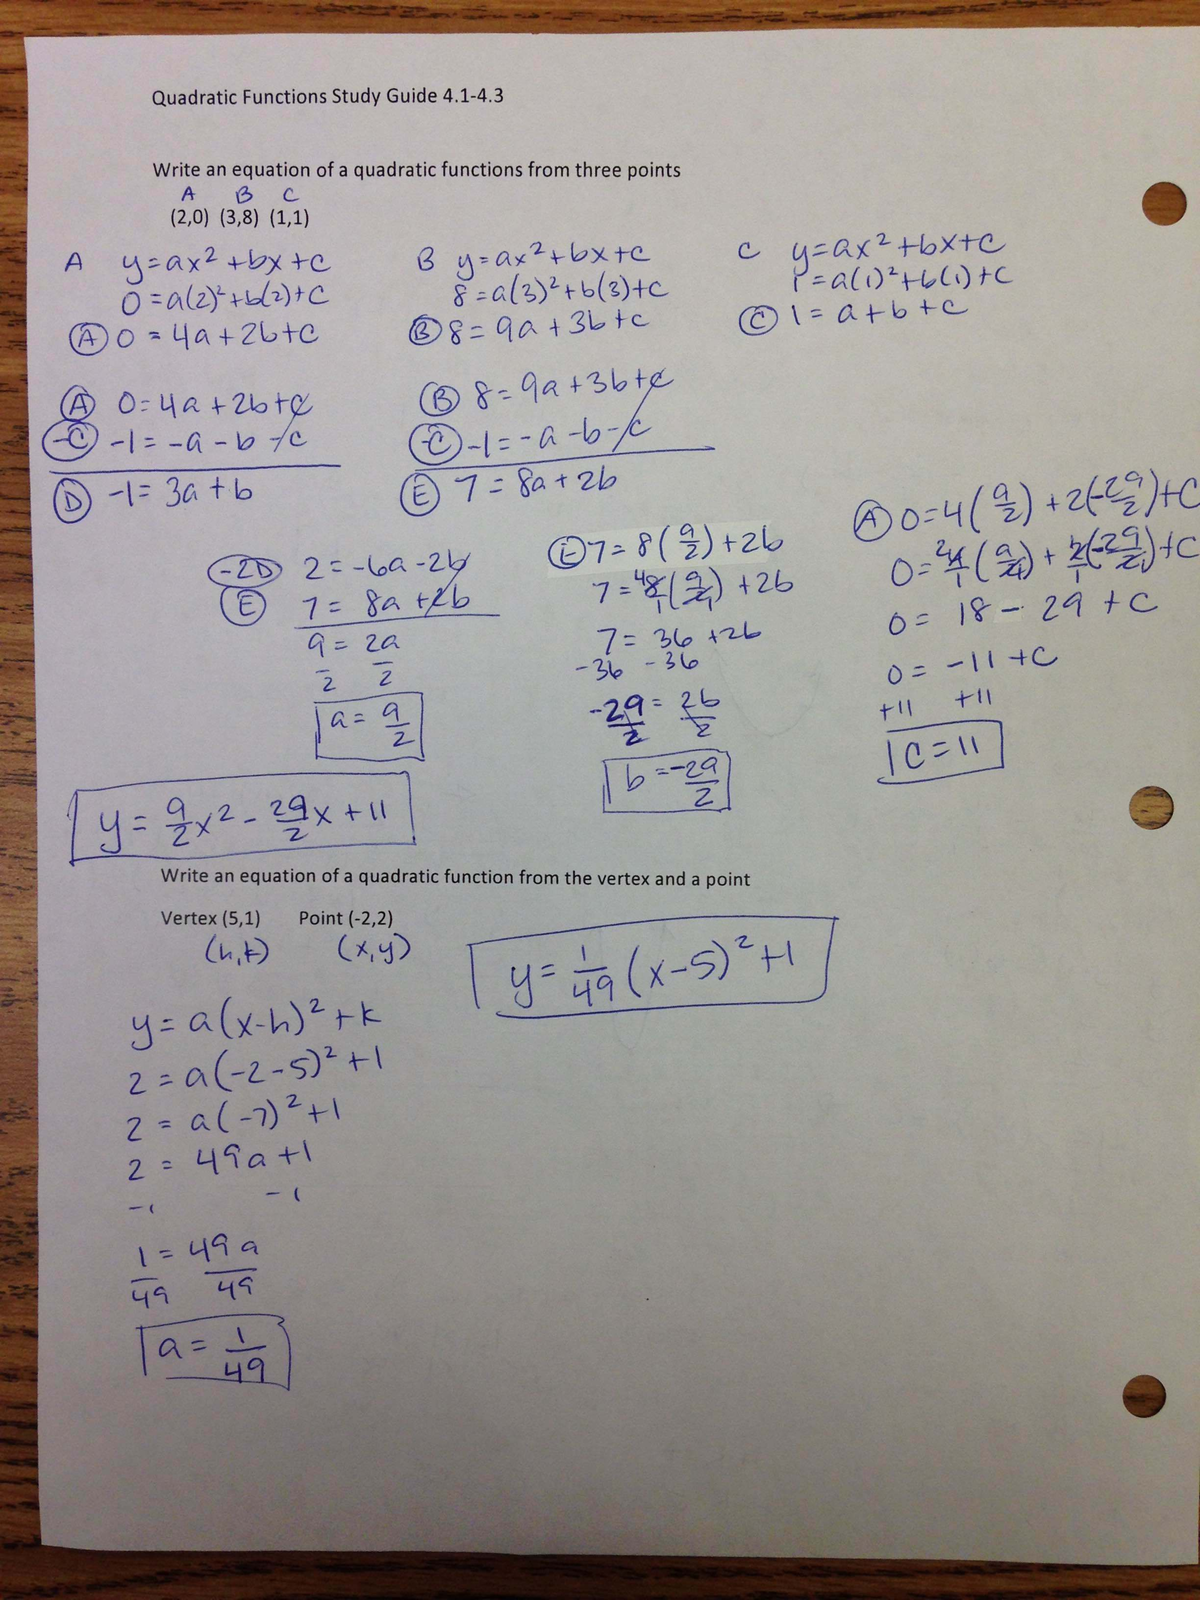 Quadratic Functions Study Guide 4.1-4.3
Write an equation of a quadratic functions from three points
A B C
(2,0) (3,8) (1,1)
A y=ax²+bx+c
0=a(2)²+b(2)+c
Ⓐ 0 = 4a+2b+c
B y=ax²+bx+c
8=a(3)²+b(3)+c
Ⓑ 8=9a+3b+c
C y=ax²+bx+c
1=a(1)²+b(1)+c
Ⓒ 1=a+b+c
Ⓐ 0=4a+2b+c
-C -1=-a-b-c
Ⓓ -1=3a+b
Ⓑ 8=9a+3b+c
-C -1=-a-b-c
Ⓔ 7=8a+2b
-2D 2=-6a-2b
Ⓔ 7=8a+2b
9 = 2a
2 2
a=9/2
Ⓔ 7=8(9/2)+2b
7=48/1(9/21)+2b
7=36+2b
-36 -36
-29/2=2b/2
b=-29/2
Ⓐ 0=4(9/2)+2(-29/2)+c
0=24/1(9/21)+2/1(-29/21)+c
0=18-29+c
0=-11+c
+11 +11
c=11
y=9/2x²-29/2x+11
Write an equation of a quadratic function from the vertex and a point
Vertex (5,1) Point (-2,2)
(h,k) (x,y)
y=1/49(x-5)²+1
y=a(x-h)²+k
2=a(-2-5)²+1
2=a(-7)²+1
2=49a+1
-1 -1
1=49a
49 49
a=1/49